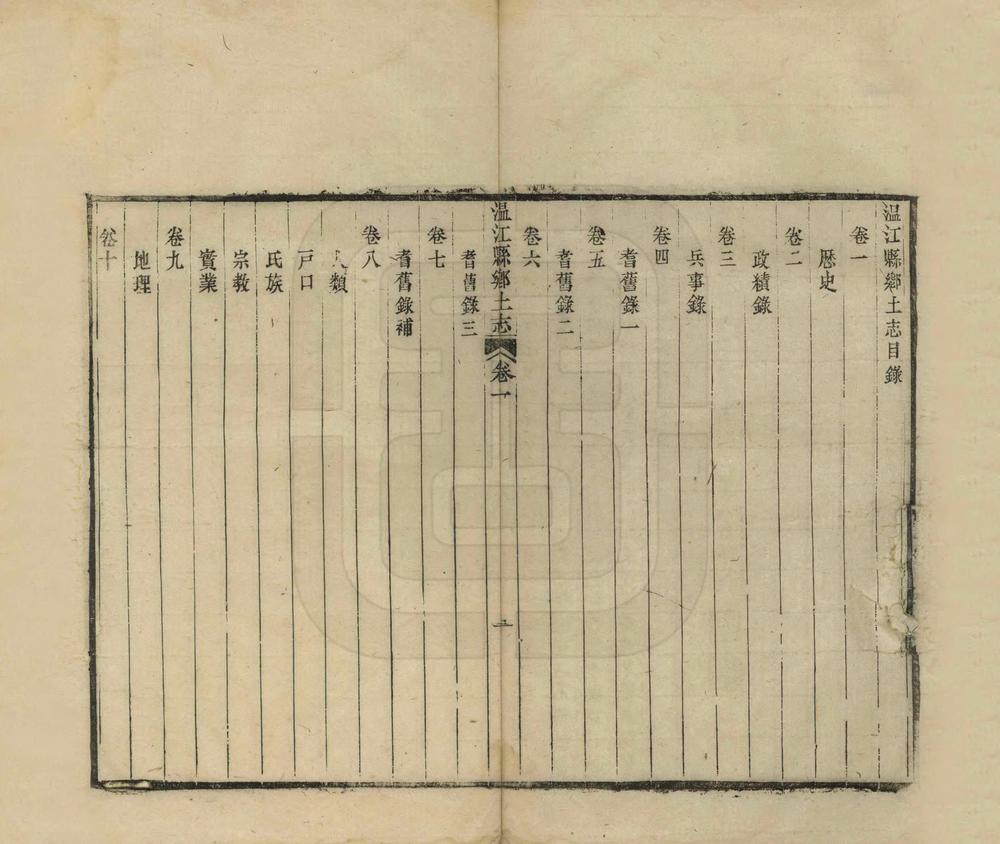 温江縣鄉土志目錄
卷一
歷史
卷二
政績錄
卷三
兵事錄
卷四
耆舊錄一
卷五
耆舊錄二
卷六
温江縣鄉土志 卷一
二
耆舊錄三
卷七
耆舊錄補
卷八
人類
戶口
氏族
宗教
實業
卷九
地理
卷十